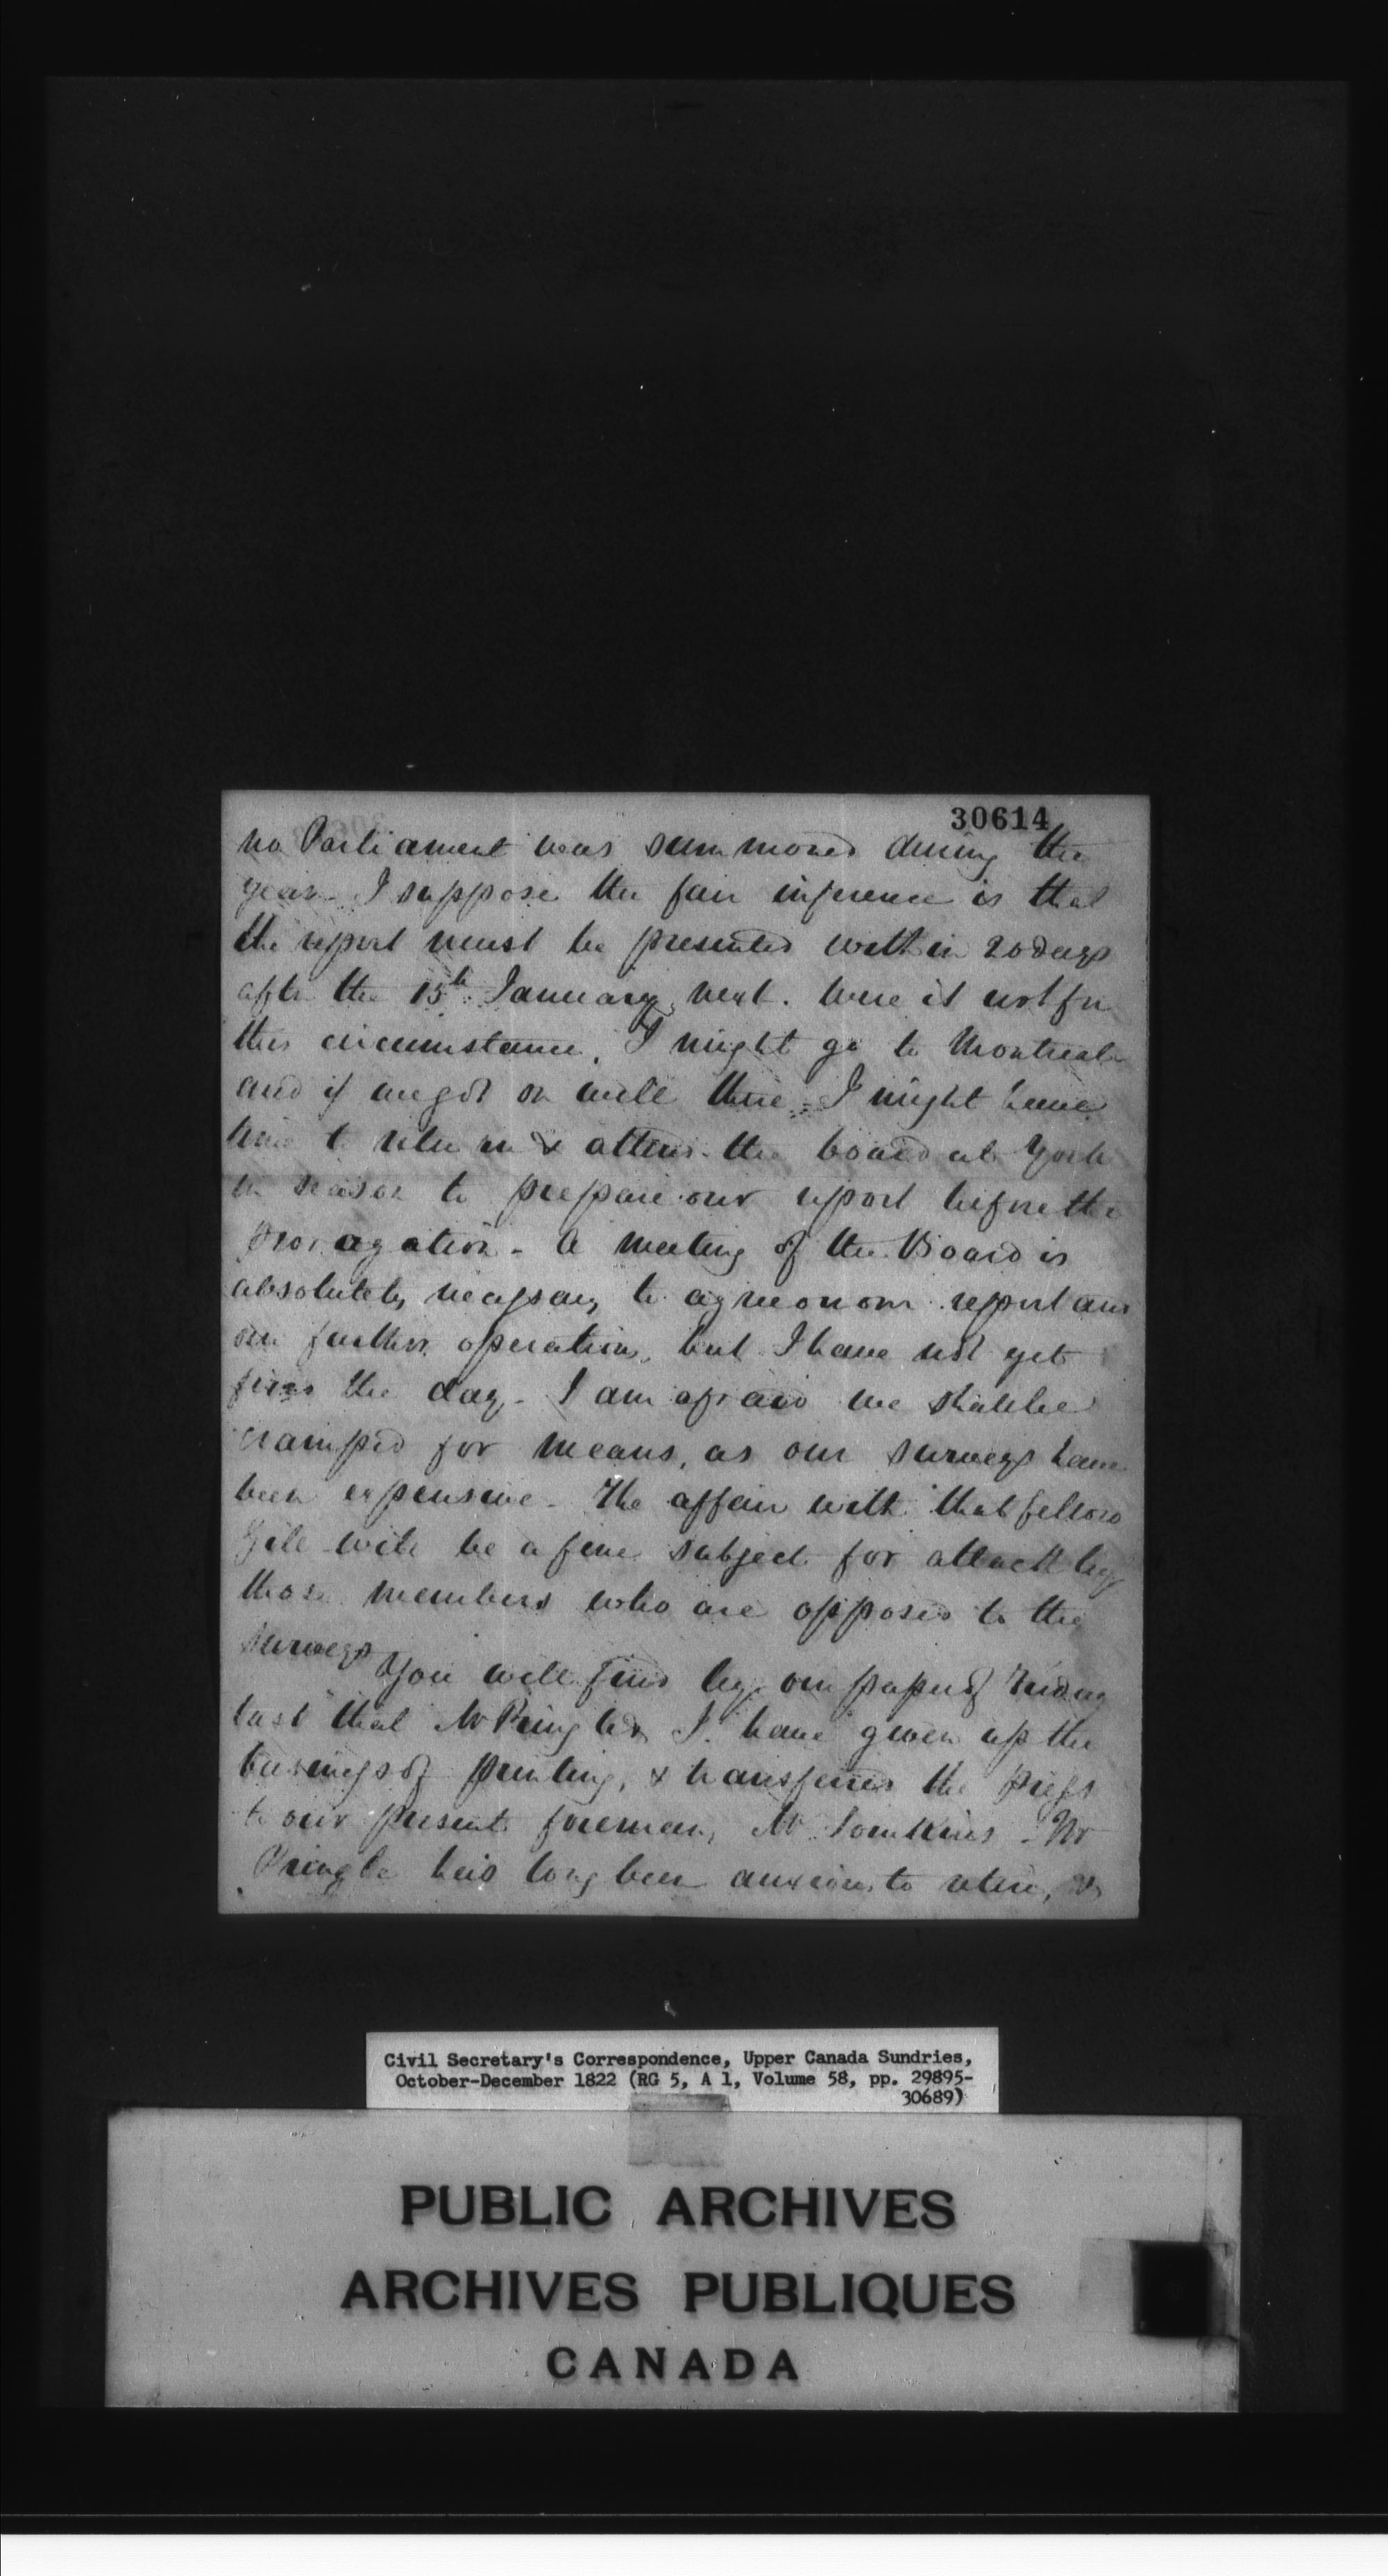 30614
no Parliament was summoned during the
year. I suppose the fair inference is that
the report must be presented within 20 days
after the 15th January next. Were it not for
this circumstance, I might go to Montreal
and if we got on well there, I might have
time to return & attend the board at York
in season to prepare our report before the
prorogation - A meeting of the Board is
absolutely necessary to agree on our report and
our further operation, but I have not yet
fixed the day - I am afraid we shall be
cramped for means, as our surveys have
been expensive - The affair with that fellow
will be a fine subject for attack by
those members who are opposed to the
surveys
You will find by our paper of Friday
last that Mr Pringle & I have given up the
business of printing, & transferred the press
to our present foreman, Mr Tomkins - Mr
Pringle has long been anxious to retire, &
Civil Secretary's Correspondence, Upper Canada Sundries,
October-December 1822 (RG 5, A 1, Volume 58, pp. 29895-
30689)
PUBLIC ARCHIVES
ARCHIVES PUBLIQUES
CANADA